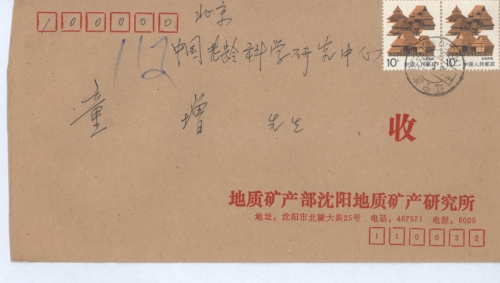 100000
北京
中国老龄科学研究中心
112
童增 先生
收
地质矿产部沈阳地质矿产研究所
地址,沈阳市北陵大街25号 电话,467571 电报,6095
110032
10分 中国人民邮政
10分 中国人民邮政